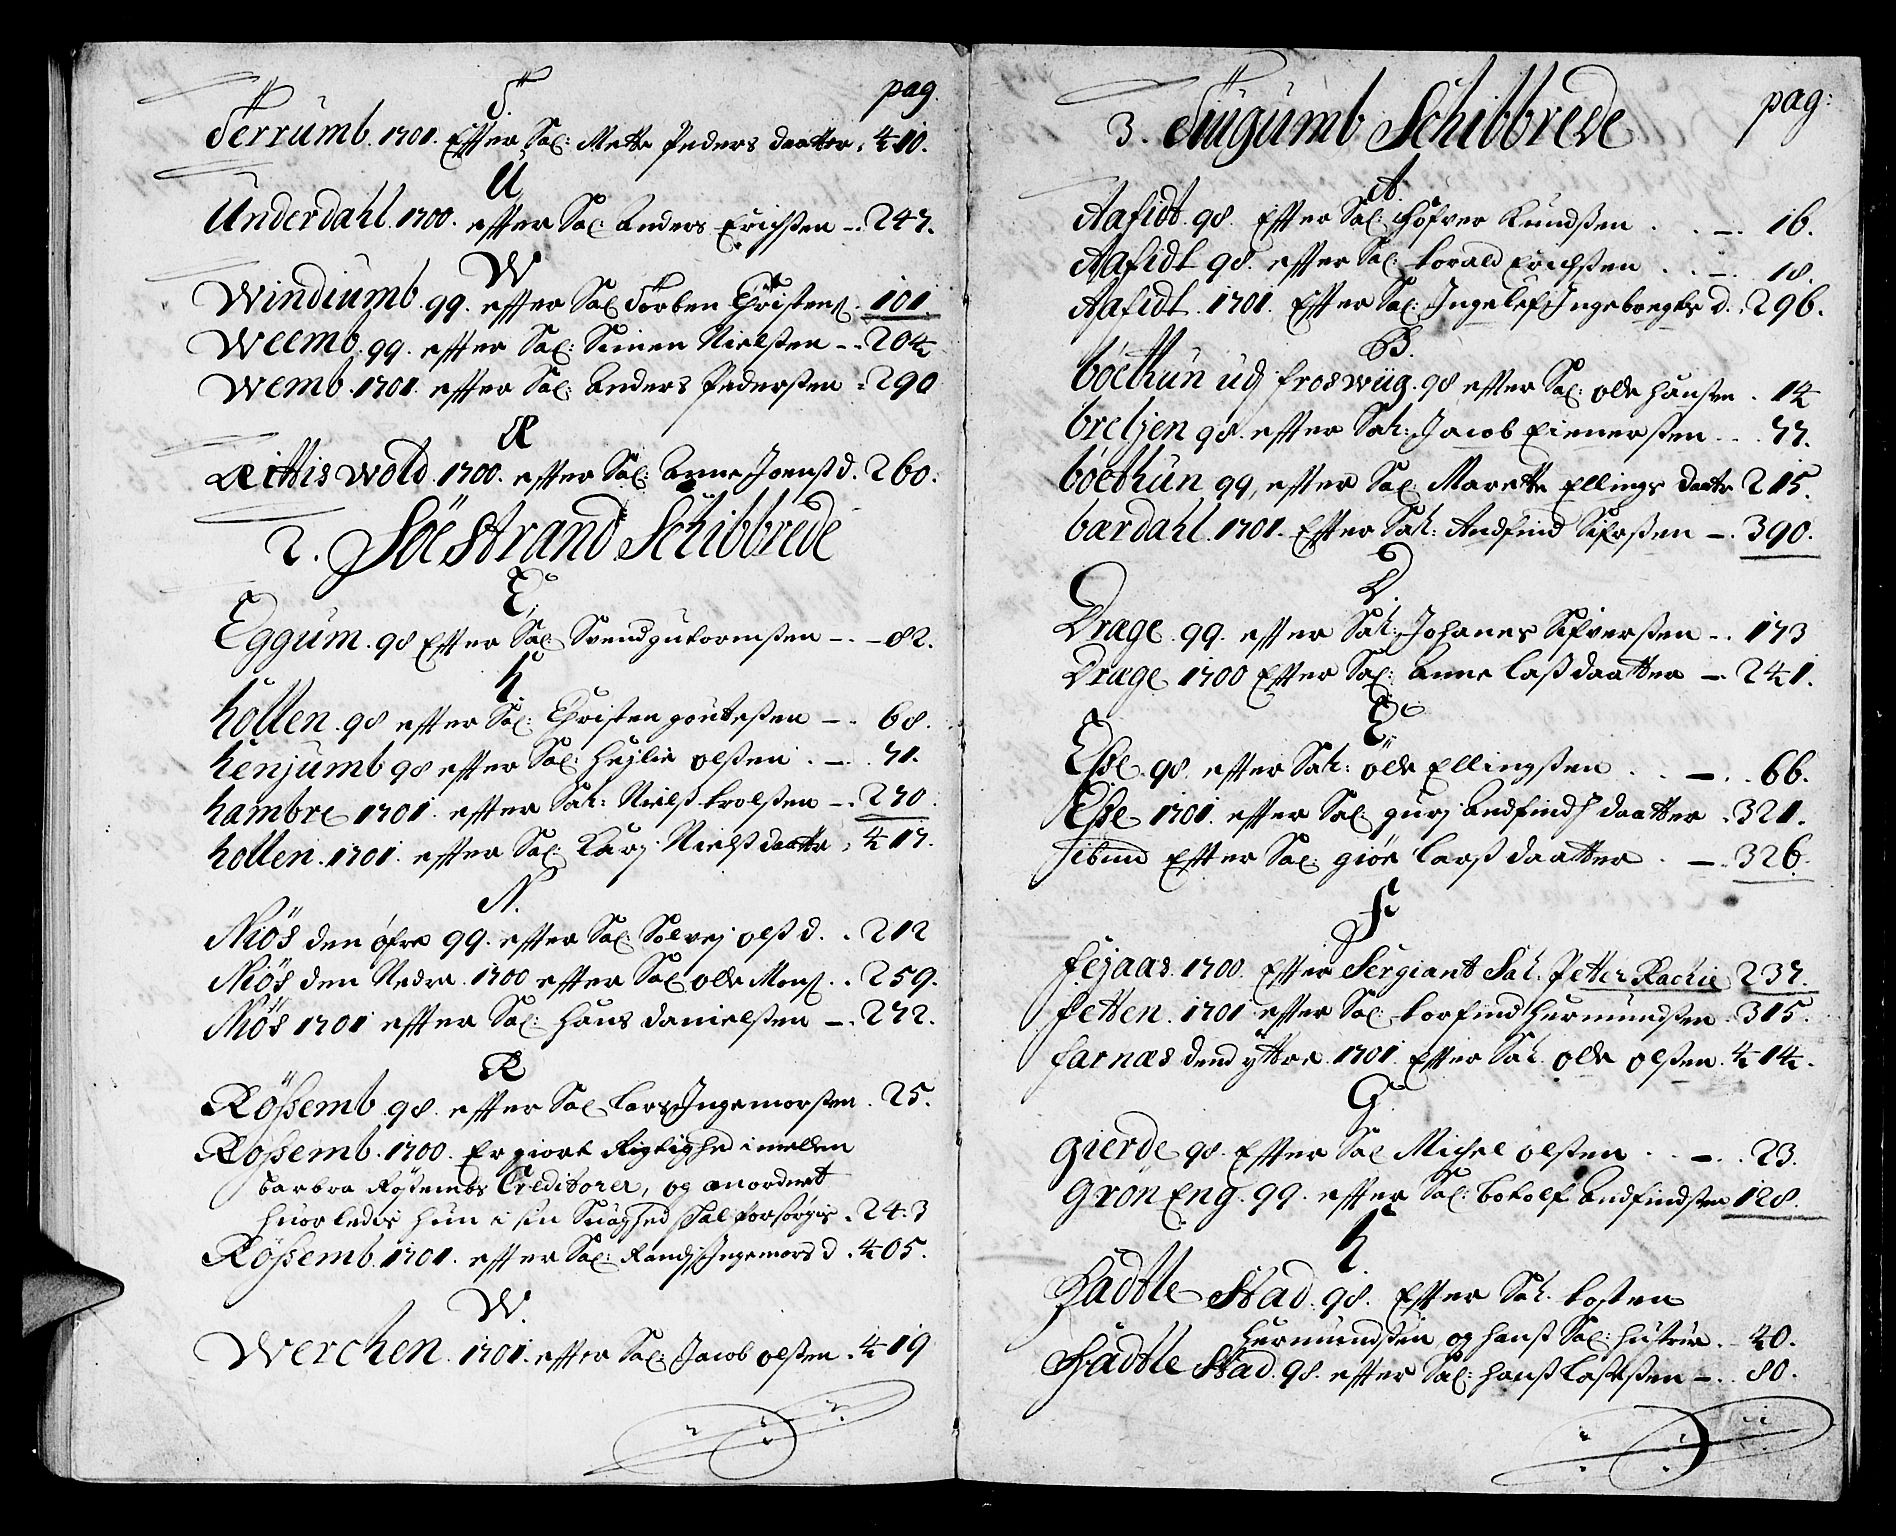 T. pag.
Ferrumb. 1701. Efter Sal: Mette Peders daatter. 410.
U
Underdahl. 1700. efter Sal: Anders Erichsen -. 247.
W
Windiumb. 99. efter Sal Torben Christens. 101.
Weemb. 99. efter Sal: Simen Nielsen -. 204
Wemb. 1701. efter Sal: Anders Pedersen . 290
Æ
Æittis wold. 1700. efter Sal: Anne Joensd. 260.
2. Söestrand Schibbrede
E.
Eggum. 98 Efter Sal: Svend guttormsen -. -82.
h.
hollen. 98 efter Sal: Christen goutesen -. 68.
henjumb 98 efter Sal: heljie olsen . -. 71.
hambre 1701. efter Sal: Niels trolsen -. 270.
hollen. 1701. efter Sal: Karj Niels daatter . 417.
N.
Niös den öfre 99. efter Sal Solvej ols d. . 212
Niös den Nedre. 1700 efter Sal olle Mons. . 259.
Niös 1701 efter Sal: hans danielsen -. 272.
R
Rössemb. 98. efter Sal lars Ingemorsen . 25.
Rössemb. 1700. Er giort Rigtighed imellem
barbra Rössembs Creditorer, og anordnet
huorledis hun i sin Suaghed skal forsörgis . 243
Rössemb. 1701. efter Sal: Randj Ingemors d. 405.
W.
Werchen. 1701. efter Sal: Jacob olsen . 419
pag:
3. Siugumb Schibbrede
A.
Aafidt. 98. Efter Sal: höfver Knudsen . . -. 16.
Aafidt 98. efter Sal: torald Erichsen . . -. 18.
Aafidt. 1701. Efter Sal: Ingelef Ingebregts d. . 296.
B.
böethun udj froswiig. 98 efter Sal: olle hansen . 14
bretjen 98. efter Sal: Jacob Einersen . . . 77.
böethun 99, efter Sal: Marette Ellings daatr 215.
bærdahl. 1701. Efter Sal: Andfind Sifrsen -. 390.
D.
Drage. 99. efter Sal: Johanes Sifversen -. 173
Drage 1700 Efter Sal: Anne lass daatter -. 241.
E
Esse. 98. efter Sal: olle Ellingsen . . -. . 66.
Esse 1701. efter Sal gurj Andfinds daatter . 321.
ibm Efter Sal: giöe lars daatter . -. 326.
F
fejaas. 1700. Efter Sergiant Sal. Petter Rachie 237.
fetten. 1701 efter Sal torfind hermundsen . 315.
farnæs dend yttre 1701. Efter Sal. olle olsen . 414.
G.
gierde 98. Efter Sal Michel olsen . . -. . 23.
grönEng. 99. efter Sal: botolf Andfindsen 128.
h.
hadtle Stad. 98. Efter Sal. tosten
hermundsen og hans Sal: hustrue. - 40.
hadtle Stad. 98. efter Sal: hans lassesen -. . 80.